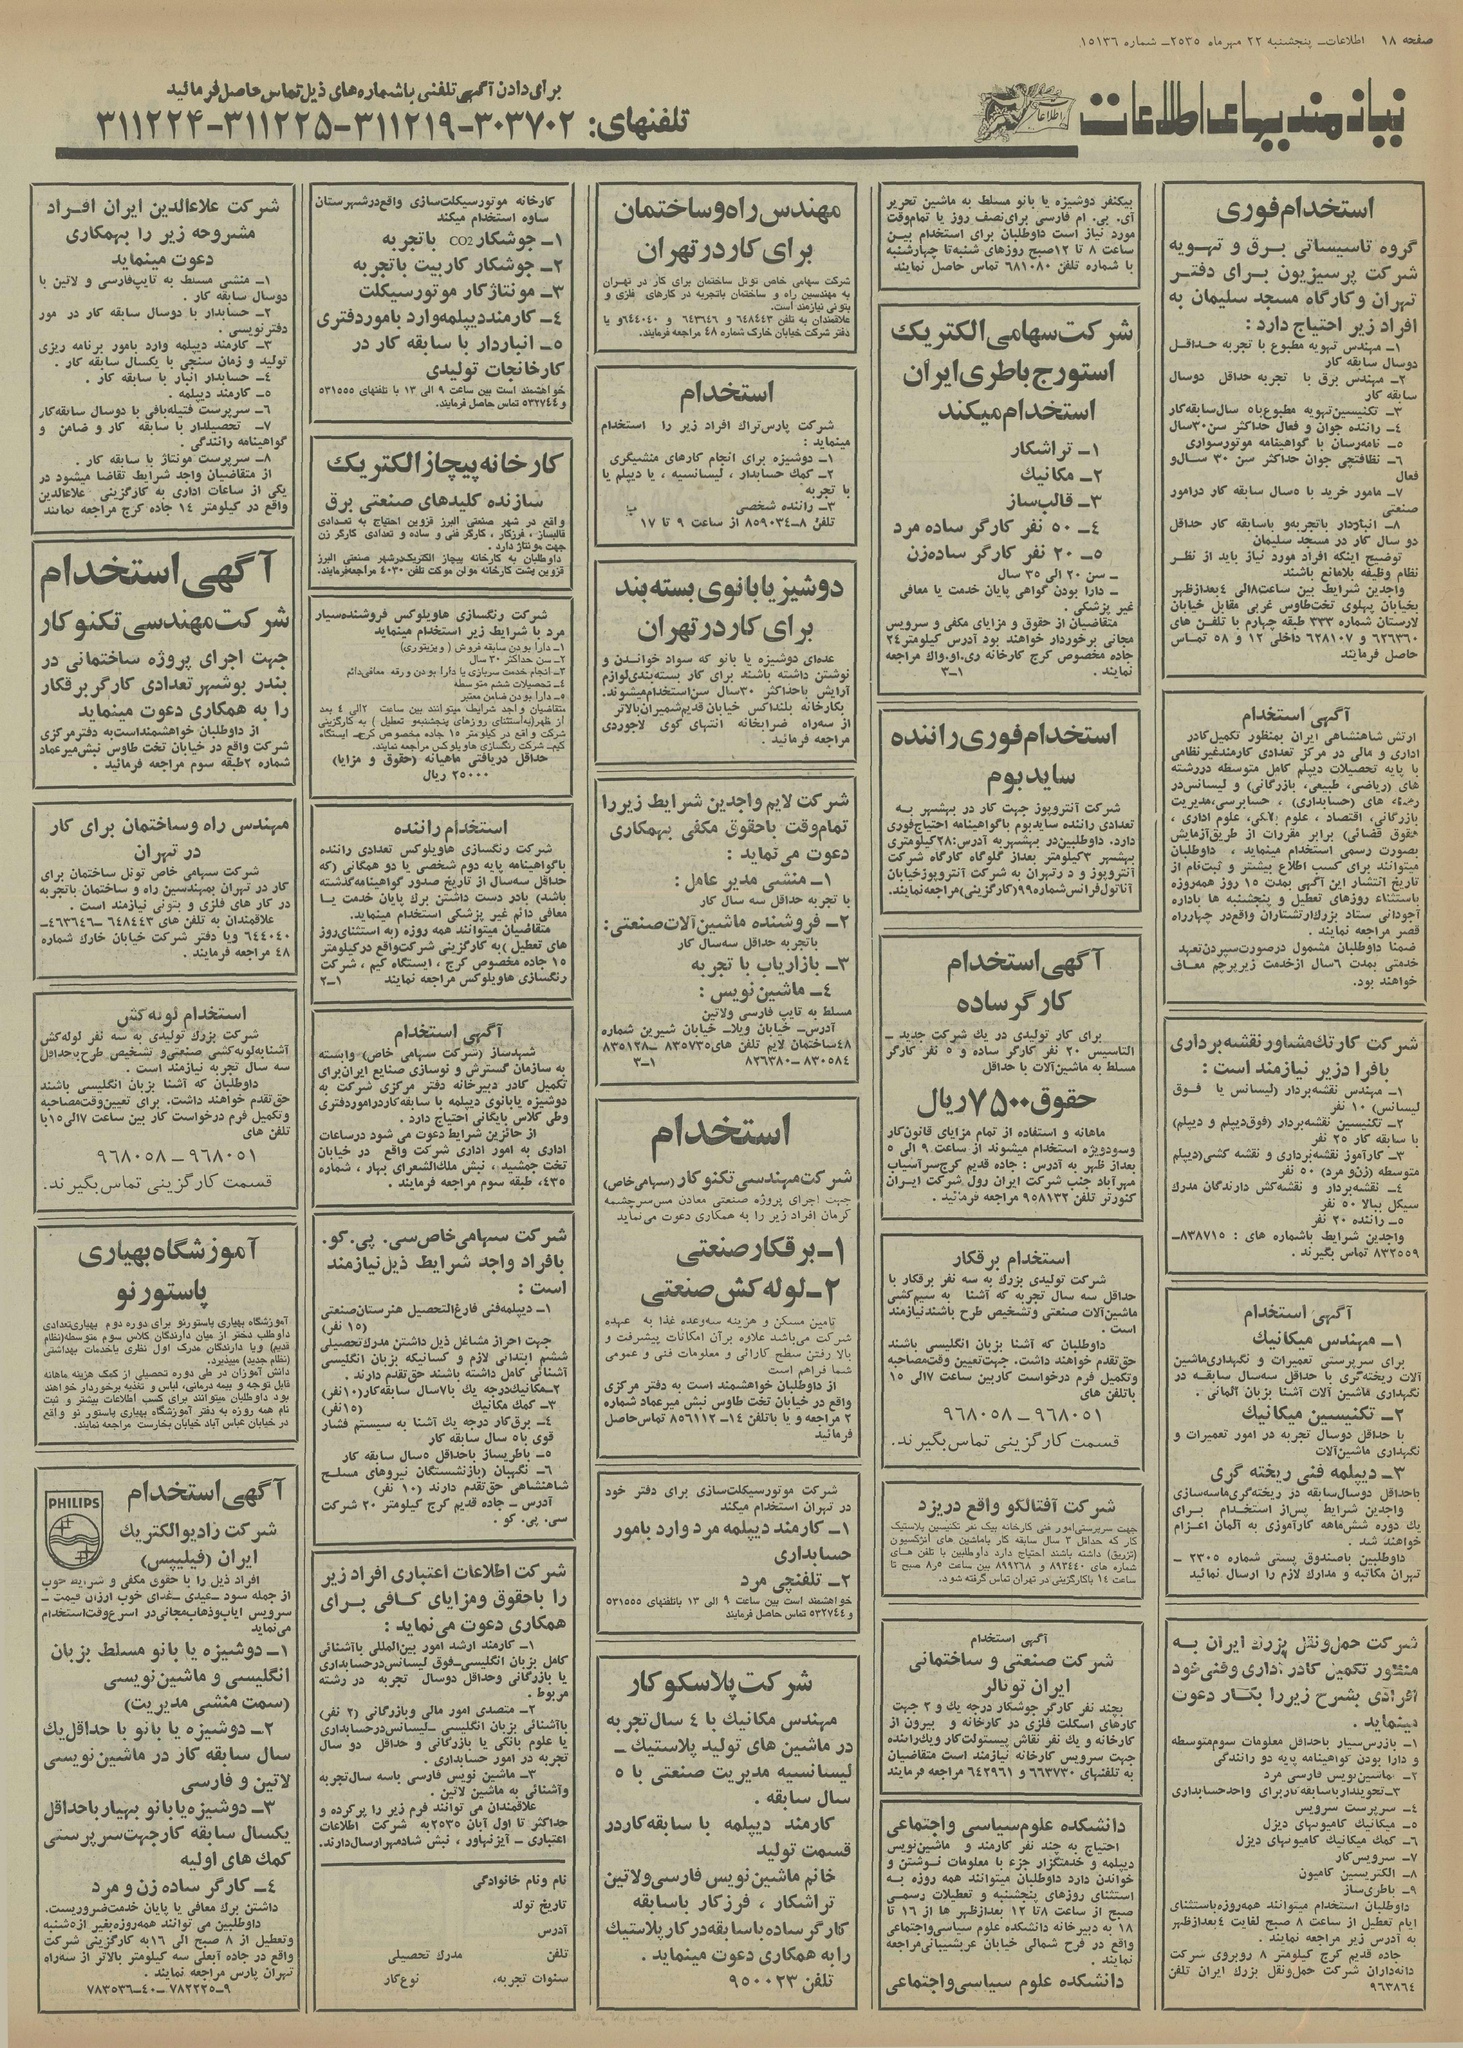 صفحه ۱۸ اطلاعات ـ پنجشنبه ۲۲ مهرماه ۲۵۳۵ ـ شماره ۱۵۱۳۶
نیازمندیهای اطلاعات
برای دادن آگهی تلفنی باشماره های ذیل تماس حاصل فرمائید
تلفنهای: ۳۰۳۷۰۲-۳۱۱۲۱۹-۳۱۱۲۲۵-۳۱۱۲۲۴
استخدام فوری
گروه تاسیساتی برق و تهویه
شرکت پرسیزیون برای دفتر
تهران وکارگاه مسجد سلیمان به
افراد زیر احتیاج دارد :
۱ـ مهندس تهویه مطبوع با تجربه حداقل
دوسال سابقه کار
۲ـ مهندس برق با تجربه حداقل دوسال
سابقه کار
۳ـ تکنیسین تهویه مطبوع با ۵ سال سابقه کار
۴ـ راننده جوان و فعال حداکثر سن ۳۰ سال
۵ـ نامه رسان با گواهینامه موتورسواری
۶ـ نظافتچی جوان حداکثر سن ۳۰ سال و
فعال
۷ـ مامور خرید با ۵ سال سابقه کار درامور
صنعتی
۸ـ انباردار باتجربه و باسابقه کار حداقل
دو سال کار در مسجد سلیمان
توضیح اینکه افراد مورد نیاز باید از نظر
نظام وظیفه بلامانع باشند
واجدین شرایط بین ساعت ۸ الی ۴ بعدازظهر
بخیابان پهلوی تخت طاوس غربی مقابل خیابان
لارستان شماره ۳۳۳ طبقه چهارم با تلفن های
۶۲۶۳۶۰ و ۶۲۸۱۰۷ داخلی ۱۲ و ۵۸ تماس
حاصل فرمایند
آگهی استخدام
ارتش شاهنشاهی ایران بمنظور تکمیل کادر
اداری و مالی در مرکز تعدادی کارمند غیر نظامی
با پایه تحصیلات دیپلم کامل متوسطه دررشته
های (ریاضی، طبیعی، بازرگانی) و لیسانس در
رشته های (حسابداری) ، حسابرسی، مدیریت
بازرگانی، اقتصاد ، علوم بانکی، علوم اداری ،
حقوق قضائی) برابر مقررات از طریق آزمایش
بصورت رسمی استخدام مینماید ، داوطلبان
میتوانند برای کسب اطلاع بیشتر و ثبت نام از
تاریخ انتشار این آگهی بمدت ۱۵ روز همه روزه
باستثناء روزهای تعطیل و پنجشنبه ها باداره
آجودانی ستاد بزرگ ارتشتاران واقع در چهارراه
قصر مراجعه نمایند .
ضمنا داوطلبان مشمول درصورت سپردن تعهد
خدمتی بمدت ۶ سال از خدمت زیر پرچم معاف
خواهند بود.
شرکت کارتک مشاور نقشه برداری
بافراد زیر نیازمند است :
۱ـ مهندس نقشه بردار (لیسانس یا فوق
لیسانس) ۱۰ نفر
۲ـ تکنیسین نقشه بردار (فوق دیپلم و دیپلم)
با سابقه کار ۲۵ نفر
۳ـ کارآموز نقشه برداری و نقشه کشی (دیپلم
متوسطه (زن و مرد) ۵۰ نفر
۴ـ نقشه بردار و نقشه کش دارندگان مدرک
سیکل ببالا ۵۰ نفر
۵ـ راننده ۲۰ نفر
واجدین شرایط باشماره های : ۸۳۸۷۱۵ـ
۸۳۲۵۵۹ تماس بگیرند .
آگهی استخدام
۱ـ مهندس میکانیک
برای سرپرستی تعمیرات و نگهداری ماشین
آلات ریخته گری با حداقل سه سال سابقه در
نگهداری ماشین آلات آشنا بزبان آلمانی .
۲ـ تکنیسین میکانیک
با حداقل دوسال تجربه در امور تعمیرات و
نگهداری ماشین آلات
۳ـ دیپلمه فنی ریخته گری
باحداقل دوسال سابقه در ریخته گری ماسه سازی
واجدین شرایط پس از استخدام برای
یک دوره شش ماهه کارآموزی به آلمان اعزام
خواهند شد .
داوطلبین باصندوق پستی شماره ۲۳۰۵ ـ
تهران مکاتبه و مدارک لازم را ارسال نمائید
شرکت حمل و نقل بزرگ ایران به
منظور تکمیل کادر اداری و فنی خود
افرادی بشرح زیر را بکار دعوت
مینماید .
۱ـ بازرس سیار باحداقل معلومات سوم متوسطه
و دارا بودن گواهینامه پایه دو رانندگی
۲ـ ماشین نویس فارسی مرد
۳ـ تحویلدار باسابقه کار برای واحد حسابداری
۴ـ سرپرست سرویس
۵ـ میکانیک کامیونهای دیزل
۶ـ کمک میکانیک کامیونهای دیزل
۷ـ سرویس کار
۸ـ الکتریسین کامیون
۹ـ باطری ساز
داوطلبان استخدام میتوانند همه روزه باستثنای
ایام تعطیل از ساعت ۸ صبح لغایت ۴ بعدازظهر
به آدرس زیر مراجعه نمایند .
جاده قدیم کرج کیلومتر ۸ روبروی شرکت
دانه داران شرکت حمل و نقل بزرگ ایران تلفن
۹۶۳۸۶۴
بیکنفر دوشیزه یا بانو مسلط به ماشین تحریر
آی. بی. ام فارسی برای نصف روز یا تمام وقت
مورد نیاز است داوطلبان برای استخدام بین
ساعت ۸ تا ۱۲ صبح روزهای شنبه تا چهارشنبه
با شماره تلفن ۶۸۱۰۸۰ تماس حاصل نمایند
شرکت سهامی الکتریک
استورج باطری ایران
استخدام میکند
۱ـ تراشکار
۲ـ مکانیک
۳ـ قالب ساز
۴ـ ۵۰ نفر کارگر ساده مرد
۵ـ ۲۰ نفر کارگر ساده زن
ـ سن ۲۰ الی ۳۵ سال
ـ دارا بودن گواهی پایان خدمت یا معافی
غیر پزشکی .
متقاضیان از حقوق و مزایای مکفی و سرویس
مجانی برخوردار خواهند بود آدرس کیلومتر ۲۴
جاده مخصوص کرج کارخانه ری.او.واک مراجعه
نمایند . ۱ـ۳
استخدام فوری راننده
ساید بوم
شرکت آنتروپوز جهت کار در بهشهر به
تعدادی راننده ساید بوم باگواهینامه احتیاج فوری
دارد. داوطلبین در بهشهر به آدرس: ۲۸ کیلومتری
بهشهر ۳ کیلومتر بعد از گلوگاه کارگاه شرکت
آنتروپوز و در تهران به شرکت آنتروپوز خیابان
آناتول فرانس شماره ۹۹ (کارگزینی) مراجعه نمایند.
آگهی استخدام
کارگر ساده
برای کار تولیدی در یک شرکت جدید ـ
التاسیس ۲۰ نفر کارگر ساده و ۵ نفر کارگر
مسلط به ماشین آلات با حداقل
حقوق ۷۵۰۰ ریال
ماهانه و استفاده از تمام مزایای قانون کار
وسود ویژه استخدام میشوند از ساعت ۹ الی ۵
بعداز ظهر به آدرس : جاده قدیم کرج سرآسیاب
مهرآباد جنب شرکت ایران رول شرکت ایران
کنورتر تلفن ۹۵۸۱۳۲ مراجعه فرمائید .
استخدام برقکار
شرکت تولیدی بزرگ به سه نفر برقکار با
حداقل سه سال تجربه که آشنا به سیم کشی
ماشین آلات صنعتی و تشخیص طرح باشند نیازمند
است .
داوطلبان که آشنا بزبان انگلیسی باشند
حق تقدم خواهند داشت. جهت تعیین وقت مصاحبه
وتکمیل فرم درخواست کار بین ساعت ۷ الی ۱۵
باتلفن های
۹۶۸۰۵۱ ـ ۹۶۸۰۵۸
قسمت کارگزینی تماس بگیرند.
شرکت آفتالکو واقع در یزد
جهت سرپرستی امور فنی کارخانه بیک نفر تکنیسین پلاستیک
کار که حداقل ۳ سال سابقه کار باماشین های انژکسیون
(تزریق) داشته باشند احتیاج دارد داوطلبین با تلفن های
شماره های ۸۹۲۴۴۰ و ۸۹۹۲۶۸ بین ساعت ۸٫۵ صبح تا
ساعت ۱۴ باکارگزینی در تهران تماس گرفته شود.
آگهی استخدام
شرکت صنعتی و ساختمانی
ایران تونالر
بچند نفر کارگر جوشکار درجه یک و ۲ جهت
کارهای اسکلت فلزی در کارخانه و بیرون از
کارخانه و یک نفر نقاش پیستولت کار و یک راننده
جهت سرویس کارخانه نیازمند است متقاضیان
به تلفنهای ۶۶۳۷۳۰ و ۶۴۲۹۶۱ مراجعه فرمایند
دانشکده علوم سیاسی و اجتماعی
احتیاج به چند نفر کارمند و ماشین نویس
دیپلمه و خدمتگزار جزء با معلومات نوشتن و
خواندن دارد داوطلبان میتوانند همه روزه به
استثنای روزهای پنجشنبه و تعطیلات رسمی
صبح از ساعت ۸ تا ۱۲ بعدازظهر ها از ۱۶ تا
۱۸ به دبیرخانه دانشکده علوم سیاسی و اجتماعی
واقع در فرح شمالی خیابان عربشیبانی مراجعه
نمایند .
دانشکده علوم سیاسی و اجتماعی
مهندس راه و ساختمان
برای کار در تهران
شرکت سهامی خاص تونل ساختمان برای کار در تهران
به مهندسین راه و ساختمان باتجربه در کارهای فلزی و
بتونی نیازمند است.
علاقمندان به تلفن ۶۴۸۴۴۳ و ۶۴۳۶۴۶ و ۶۴۴۰۴۰ و یا
دفتر شرکت خیابان خارک شماره ۴۸ مراجعه فرمایند.
استخدام
شرکت پارس تراک افراد زیر را استخدام
مینماید :
۱ـ دوشیزه برای انجام کارهای منشیگری
۲ـ کمک حسابدار ، لیسانسیه ، یا دیپلم با
تجربه
۳ـ راننده شخصی
تلفن ۸ـ۸۵۹۰۳۴ از ساعت ۹ تا ۱۷
دوشیز یا بانوی بسته بند
برای کار در تهران
عده ای دوشیزه یا بانو که سواد خواندن و
نوشتن داشته باشند برای کار بسته بندی لوازم
آرایش باحداکثر ۳۰ سال سن استخدام میشوند.
بکارخانه بلنداکس خیابان قدیم شمیران بالاتر
از سه راه ضرابخانه انتهای کوی لاجوردی
مراجعه فرمائید .
شرکت لایم واجدین شرایط زیر را
تمام وقت باحقوق مکفی بهمکاری
دعوت می نماید :
۱ـ منشی مدیر عامل :
با تجربه حداقل سه سال کار
۲ـ فروشنده ماشین آلات صنعتی :
باتجربه حداقل سه سال کار
۳ـ بازاریاب با تجربه
۴ـ ماشین نویس :
مسلط به تایپ فارسی ولاتین
آدرس ـ خیابان ویلا ـ خیابان شیرین شماره
۴۸ ساختمان لایم تلفن های ۸۳۵۷۳۵ ـ ۸۳۵۱۲۸
۸۳۰۵۸۴ ـ ۸۲۶۳۸۰ ۱ـ۳
استخدام
شرکت مهندسی تکنو کار (سهامی خاص)
جهت اجرای پروژه صنعتی معادن مس سرچشمه
کرمان افراد زیر را به همکاری دعوت می نماید
۱ـ برقکار صنعتی
۲ـ لوله کش صنعتی
تامین مسکن و هزینه سه وعده غذا به عهده
شرکت می باشد علاوه بر آن امکانات پیشرفت و
بالا رفتن سطح کارائی و معلومات فنی و عمومی
شما فراهم است
از داوطلبان خواهشمند است به دفتر مرکزی
واقع در خیابان تخت طاوس نبش میرعماد شماره
۲ مراجعه و یا باتلفن ۱۴ـ۸۵۶۱۱۲ تماس حاصل
فرمائید
شرکت موتورسیکلت سازی برای دفتر خود
در تهران استخدام میکند
۱ـ کارمند دیپلمه مرد وارد بامور
حسابداری
۲ـ تلفنچی مرد
خواهشمند است بین ساعت ۹ الی ۱۳ باتلفنهای ۵۳۱۵۵۵
و ۵۳۲۷۴۴ تماس حاصل فرمایند
شرکت پلاسکو کار
مهندس مکانیک با ۴ سال تجربه
در ماشین های تولید پلاستیک ـ
لیسانسیه مدیریت صنعتی با ۵
سال سابقه .
کارمند دیپلمه با سابقه کار در
قسمت تولید
خانم ماشین نویس فارسی و لاتین
تراشکار ، فرز کار باسابقه
کارگر ساده باسابقه در کار پلاستیک
را به همکاری دعوت مینماید .
تلفن ۹۵۰۰۲۳
کارخانه موتورسیکلت سازی واقع در شهرستان
ساوه استخدام میکند
۱ـ جوشکار CO2 باتجربه
۲ـ جوشکار کاربیت باتجربه
۳ـ مونتاژ کار موتورسیکلت
۴ـ کارمند دیپلمه وارد بامور دفتری
۵ـ انباردار با سابقه کار در
کارخانجات تولیدی
خواهشمند است بین ساعت ۹ الی ۱۳ با تلفنهای ۵۳۱۵۵۵
و ۵۳۲۷۴۴ تماس حاصل فرمایند.
کارخانه پیچاز الکتریک
سازنده کلیدهای صنعتی برق
واقع در شهر صنعتی البرز قزوین احتیاج به تعدادی
قالبساز ، فرزکار ، کارگر فنی و ساده و تعدادی کارگر زن
جهت مونتاژ دارد .
داوطلبان به کارخانه پیچاز الکتریک در شهر صنعتی البرز
قزوین پشت کارخانه مولن موکت تلفن ۴۰۳۰ مراجعه فرمایند.
شرکت رنگسازی هاویلوکس فروشنده سیار
مرد با شرایط زیر استخدام مینماید
۱ـ دارا بودن سابقه فروش ( ویزیتوری)
۲ـ سن حداکثر ۳۰ سال
۳ـ انجام خدمت سربازی یا دارا بودن ورقه معافی دائم
۴ـ تحصیلات ششم متوسطه
۵ـ دارا بودن ضامن معتبر
متقاضیان واجد شرایط میتوانند بین ساعت ۲ الی ۴ بعد
از ظهر (به استثنای روزهای پنجشنبه و تعطیل ) به کارگزینی
شرکت واقع در کیلومتر ۱۵ جاده مخصوص کرج ـ ایستگاه
کیم ـ شرکت رنگسازی هاویلوکس مراجعه نمایند.
حداقل دریافتی ماهیانه (حقوق و مزایا)
۲۵۰۰۰ ریال
استخدام راننده
شرکت رنگسازی هاویلوکس تعدادی راننده
باگواهینامه پایه دوم شخصی یا دو همگانی (که
حداقل سه سال از تاریخ صدور گواهینامه گذشته
باشد) بادر دست داشتن برگ پایان خدمت یا
معافی دائم غیر پزشکی استخدام مینماید.
متقاضیان میتوانند همه روزه (به استثنای روز
های تعطیل ) به کارگزینی شرکت واقع در کیلومتر
۱۵ جاده مخصوص کرج ، ایستگاه کیم ، شرکت
رنگسازی هاویلوکس مراجعه نمایند ۱ـ۲
آگهی استخدام
شهدساز (شرکت سهامی خاص) وابسته
به سازمان گسترش و نوسازی صنایع ایران برای
تکمیل کادر دبیرخانه دفتر مرکزی شرکت به
دوشیزه یا بانوی دیپلمه با سابقه کار در امور دفتری
وطی کلاس بایگانی احتیاج دارد .
از حائزین شرایط دعوت می شود در ساعات
اداری به امور اداری شرکت واقع در خیابان
تخت جمشید ، نبش ملک الشعرای بهار ، شماره
۴۳۵، طبقه سوم مراجعه فرمایند .
شرکت سهامی خاص سی. پی. کو.
بافراد واجد شرایط ذیل نیازمند
است :
۱ـ دیپلمه فنی فارغ التحصیل هنرستان صنعتی
(۱۵ نفر)
جهت احراز مشاغل ذیل داشتن مدرک تحصیلی
ششم ابتدائی لازم و کسانیکه بزبان انگلیسی
آشنائی کامل داشته باشند حق تقدم دارند .
۲ـ مکانیک درجه یک با ۷ سال سابقه کار (۱۰ نفر)
۳ـ کمک مکانیک (۱۵ نفر)
۴ـ برق کار درجه یک آشنا به سیستم فشار
قوی با ۵ سال سابقه کار
۵ـ باطریساز باحداقل ۵ سال سابقه کار
۶ـ نگهبان (بازنشستگان نیروهای مسلح
شاهنشاهی حق تقدم دارند (۱۰ نفر)
آدرس ـ جاده قدیم کرج کیلومتر ۲۰ شرکت
سی. پی. کو .
شرکت اطلاعات اعتباری افراد زیر
را باحقوق و مزایای کافی برای
همکاری دعوت می نماید :
۱ـ کارمند ارشد امور بین المللی باآشنائی
کامل بزبان انگلیسی ـ فوق لیسانس در حسابداری
یا بازرگانی وحداقل دوسال تجربه در رشته
مربوط .
۲ـ متصدی امور مالی وبازرگانی (۲ نفر)
باآشنائی بزبان انگلیسی ـ لیسانس در حسابداری
یا علوم بانکی یا بازرگانی و حداقل دو سال
تجربه در امور حسابداری .
۳ـ ماشین نویس فارسی باسه سال تجربه
وآشنائی به ماشین لاتین .
علاقمندان می توانند فرم زیر را پر کرده و
حداکثر تا اول آبان ۲۵۳۵ به شرکت اطلاعات
اعتباری ـ آیزنهاور ، نبش شادمهر ارسال دارند.
نام ونام خانوادگی
تاریخ تولد
آدرس
تلفن مدرک تحصیلی
سنوات تجربه، نوع کار
شرکت علاءالدین ایران افراد
مشروحه زیر را بهمکاری
دعوت مینماید
۱ـ منشی مسلط به تایپ فارسی و لاتین با
دوسال سابقه کار .
۲ـ حسابدار با دوسال سابقه کار در مور
دفترنویسی .
۳ـ کارمند دیپلمه وارد بامور برنامه ریزی
تولید و زمان سنجی با یکسال سابقه کار .
۴ـ حسابدار انبار با سابقه کار .
۵ـ کارمند دیپلمه .
۶ـ سرپرست فتیله بافی با دوسال سابقه کار
۷ـ تحصیلدار با سابقه کار و ضامن و
گواهینامه رانندگی .
۸ـ سرپرست مونتاژ با سابقه کار .
از متقاضیان واجد شرایط تقاضا میشود در
یکی از ساعات اداری به کارگزینی علاءالدین
واقع در کیلومتر ۱۴ جاده کرج مراجعه نمایند
آگهی استخدام
شرکت مهندسی تکنو کار
جهت اجرای پروژه ساختمانی در
بندر بوشهر تعدادی کارگر برقکار
را به همکاری دعوت مینماید
از داوطلبان خواهشمند است به دفتر مرکزی
شرکت واقع در خیابان تخت طاوس نبش میرعماد
شماره ۲ طبقه سوم مراجعه فرمائید .
مهندس راه و ساختمان برای کار
در تهران
شرکت سهامی خاص تونل ساختمان برای
کار در تهران بمهندسین راه و ساختمان باتجربه
در کار های فلزی و بتونی نیازمند است .
علاقمندان به تلفن های ۶۴۸۴۴۳ ـ۴۶۳۶۴۶ـ
۶۴۴۰۴۰ ویا دفتر شرکت خیابان خارک شماره
۴۸ مراجعه فرمایند .
استخدام لوله کش
شرکت بزرگ تولیدی به سه نفر لوله کش
آشنا به لوله کشی صنعتی و تشخیص طرح با حداقل
سه سال تجربه نیازمند است .
داوطلبان که آشنا بزبان انگلیسی باشند
حق تقدم خواهند داشت. برای تعیین وقت مصاحبه
وتکمیل فرم درخواست کار بین ساعت ۷ الی ۱۵ با
تلفن های
۹۶۸۰۵۱ ـ ۹۶۸۰۵۸
قسمت کارگزینی تماس بگیرند.
آموزشگاه بهیاری
پاستور نو
آموزشگاه بهیاری پاستورنو برای دوره دوم بهیاری تعدادی
داوطلب دختر از میان دارندگان کلاس سوم متوسطه (نظام
قدیم) ویا دارندگان مدرک اول نظری یا خدمات بهداشتی
(نظام جدید) میپذیرد.
دانش آموزان در طی دوره تحصیلی از کمک هزینه ماهانه
قابل توجه و بیمه درمانی، لباس و تغذیه برخوردار خواهند
بود داوطلبان میتوانند برای کسب اطلاعات بیشتر و ثبت
نام همه روزه به دفتر آموزشگاه بهیاری پاستور نو واقع
در خیابان عباس آباد خیابان بخارست مراجعه نمایند.
PHILIPS
آگهی استخدام
شرکت رادیو الکتریک
ایران (فیلیپس)
افراد ذیل را با حقوق مکفی و شرایط خوب
از جمله سود ـ عیدی ـ غذای خوب ارزان قیمت ـ
سرویس ایاب و ذهاب مجانی در اسرع وقت استخدام
می نماید
۱ـ دوشیزه یا بانو مسلط بزبان
انگلیسی و ماشین نویسی
(سمت منشی مدیریت)
۲ـ دوشیزه یا بانو با حداقل یک
سال سابقه کار در ماشین نویسی
لاتین و فارسی
۳ـ دوشیزه یا بانو بهیار باحداقل
یکسال سابقه کار جهت سرپرستی
کمک های اولیه
۴ـ کارگر ساده زن و مرد
داشتن برگ معافی یا پایان خدمت ضروریست.
داوطلبین می توانند همه روزه بغیر از شنبه
وتعطیل از ۸ صبح الی ۱۶ به کارگزینی شرکت
واقع در جاده آبعلی سه کیلومتر بالاتر از سه راه
تهران پارس مراجعه نمایند .
۹ـ۷۸۲۲۲۵ ـ۴۰ـ۷۸۳۵۳۶